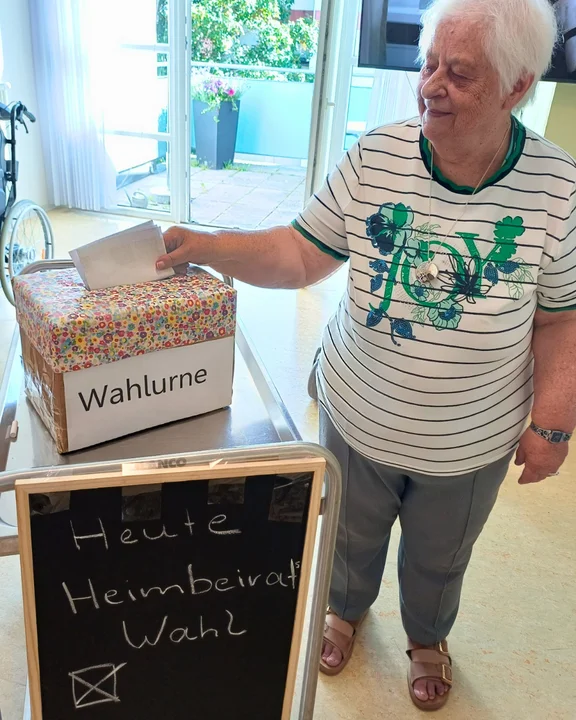 JOY
Wahlurne
Heute
Heimbeirats
Wahl